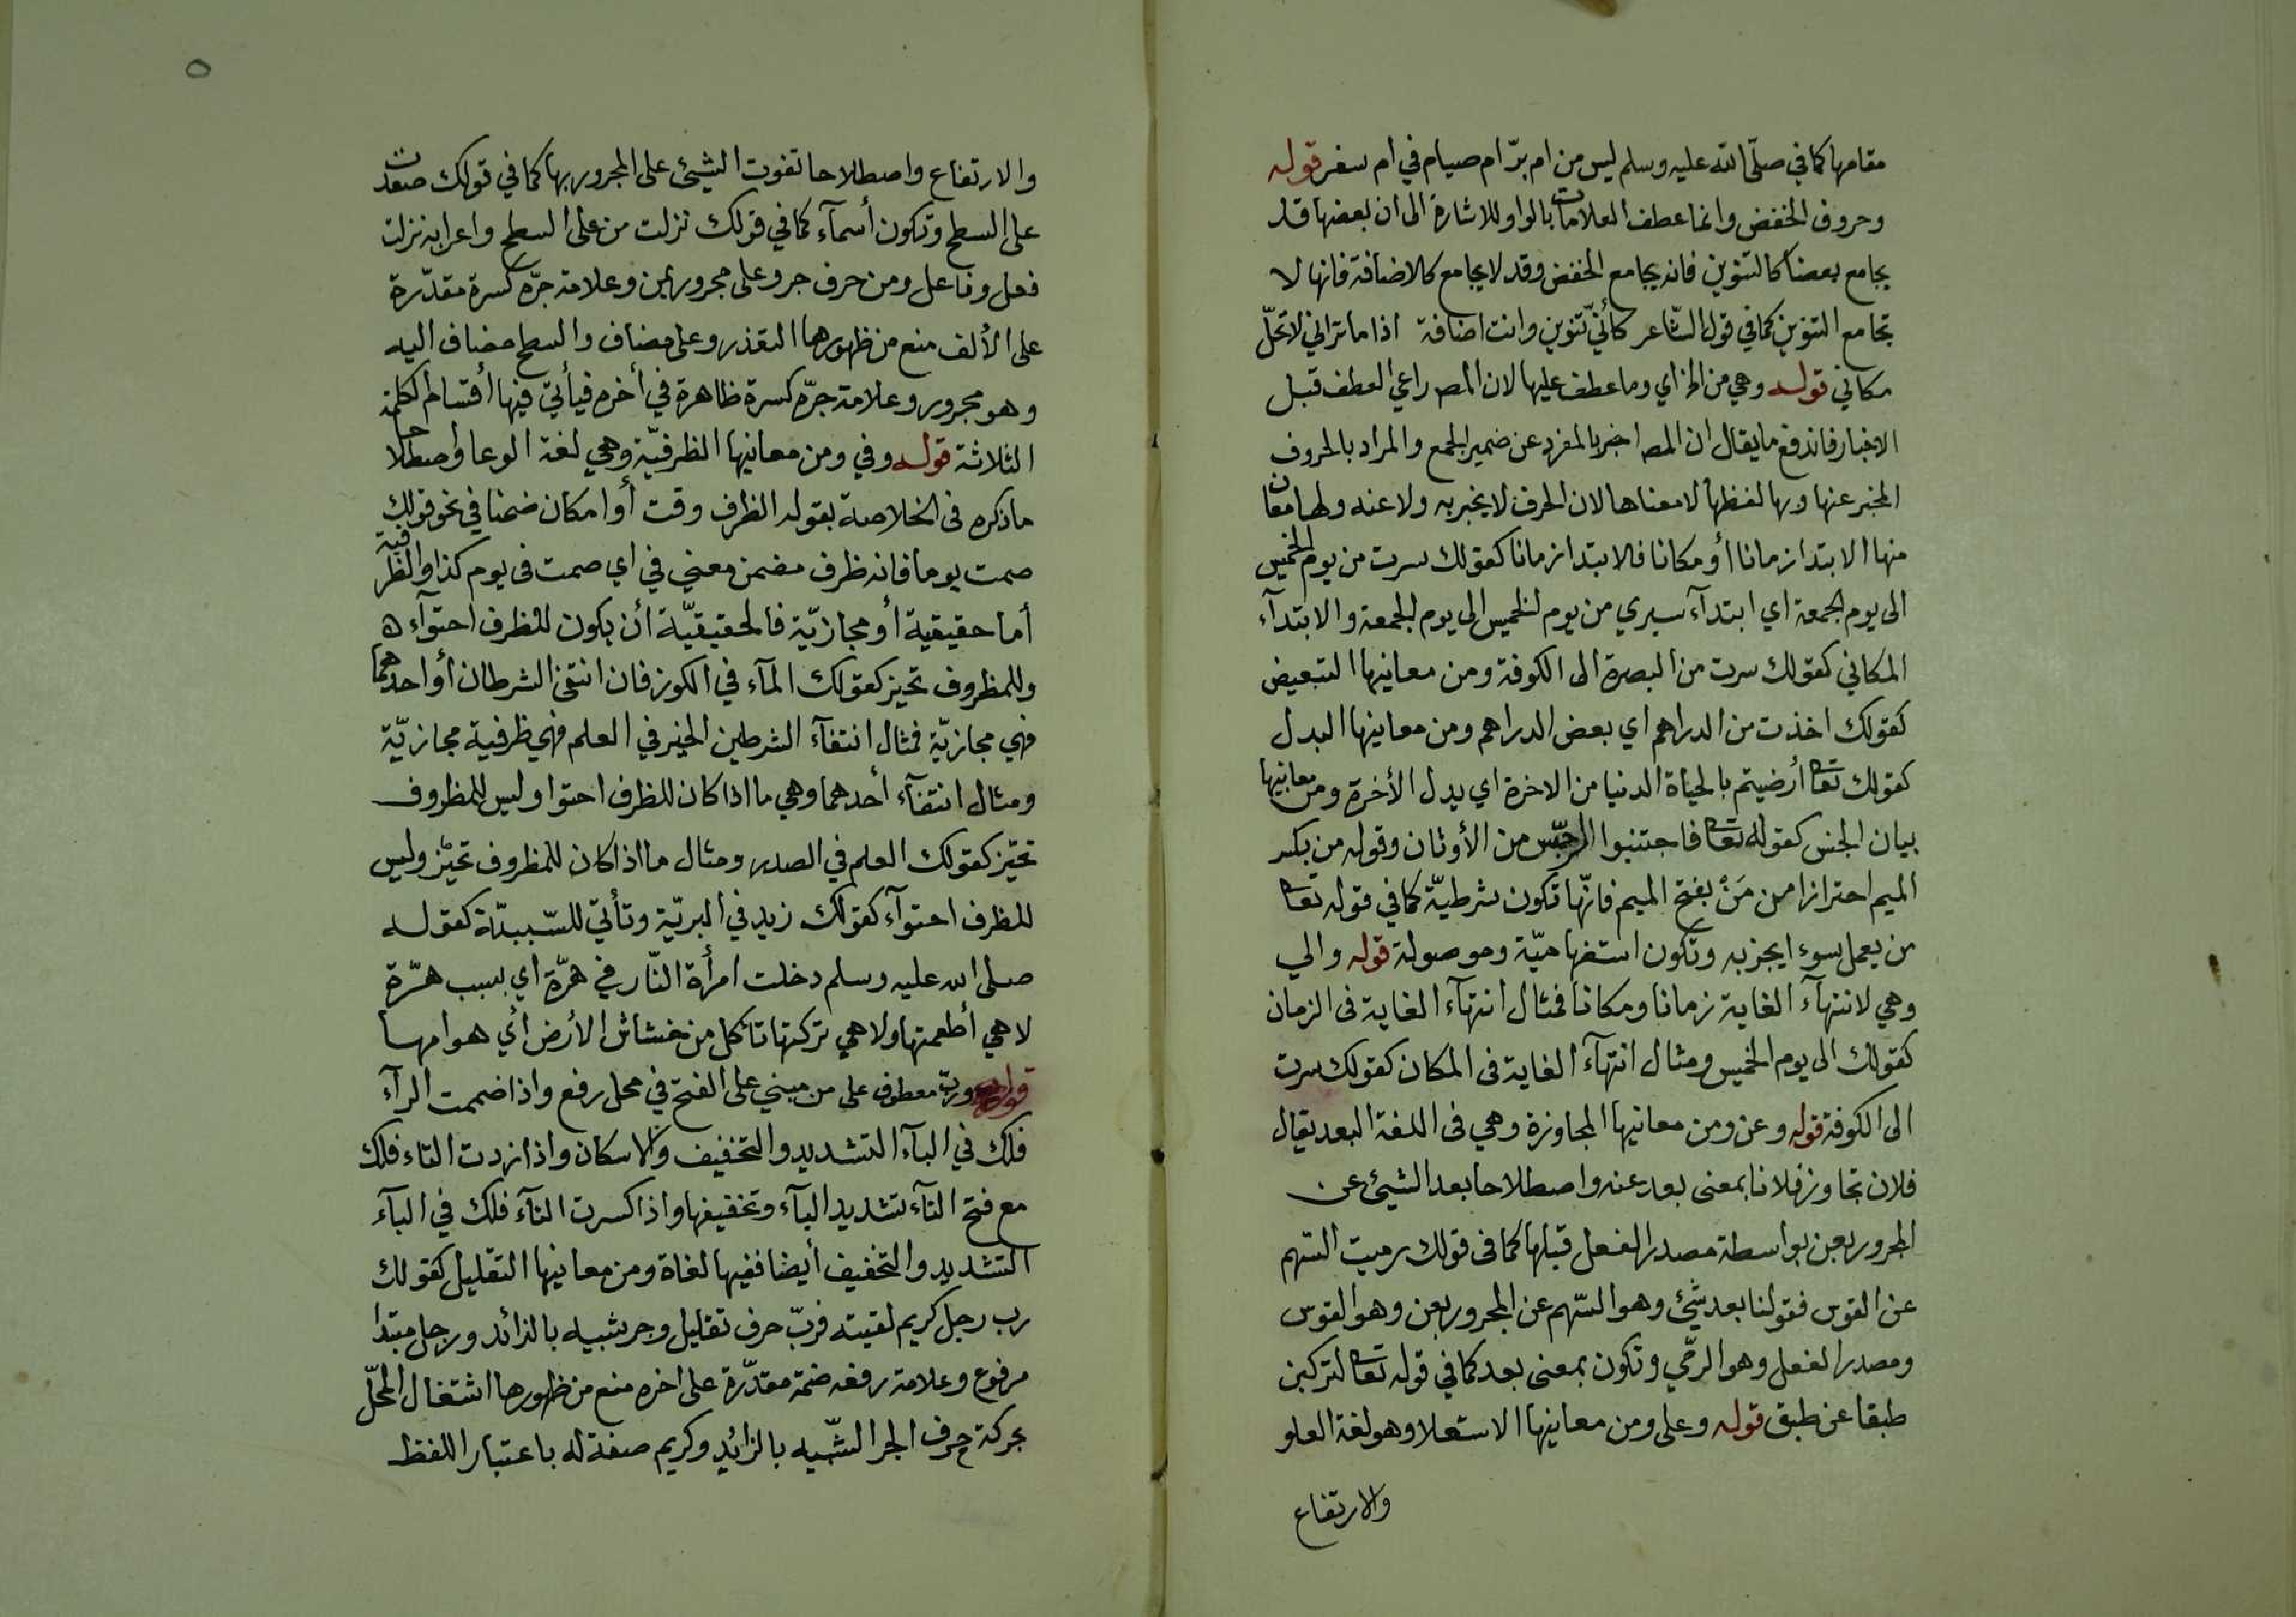 مقامها كما في صلّى الله عليه وسلم ليس من ام برّ ام صيام في ام سفر قوله
وحروف الخفض وانما عطف العلامات بالواو للاشارة الى ان بعضها قد
يجامع بعضا كالتنوين فانه يجامع الخفض وقد لا يجامع كالاضافة فانها لا
تجامع التنوين كما في قول الشاعر كأني تنوين وانت اضافة اذا ما تراني لا تحلّ
مكاني قوله وهي من الخ اي وما عطف عليها لان المص راعي العطف قبل
الاخبار فاندفع ما يقال ان المص اخبر بالمفرد عن ضمير الجمع والمراد بالحروف
المخبر عنها وبها لفظها لا معناها لان الحرف لا يخبر به ولا عنه ولها معان
منها الابتدا زمانا أو مكانا فالابتدا زمانا كقولك سرت من يوم الخميس
الى يوم الجمعة اي ابتدآء سيري من يوم الخميس الى يوم الجمعة والابتدآء
المكاني كقولك سرت من البصرة الى الكوفة ومن معانيها التبعيض
كقولك اخذت من الدراهم اي بعض الدراهم ومن معانيها البدل
كقولك تعا أرضيتم بالحياة الدنيا من الاخرة اي بدل الأخرة ومن معانيها
بيان الجنس كقوله تعا فاجتنبوا الرجس من الأوثان وقوله من بكسر
الميم احترازا من مَنْ بفتح الميم فانّها تكون شرطيّة كما في قوله تعا
من يعمل سوءا يجز به وتكون استفهاميّة وموصولة قوله والي
وهي لانتهآء الغاية زمانا ومكانا فمثال انتهآء الغاية فى الزمان
كقولك الى يوم الخميس ومثال انتهآء الغاية فى المكان كقولك سرت
الى الكوفة قوله وعن ومن معانيها المجاوزة وهي فى اللغة البعد يقال
فلان تجاوز فلانا بمعنى بعد عنه واصطلاحا بعد الشيئ عن
المجرور بعن بواسطة مصدر الفعل قبلها كما فى قولك رميت السّهم
عن القوس فقولنا بعد شيئ وهو السّهم عن المجرور بعن وهو القوس
ومصدر الفعل وهو الرمّي وتكون بمعنى بعد كما في قوله تعا لتركبن
طبقا عن طبق قوله وعلى ومن معانيها الاستعلا وهو لغة العلو
والارتفاع
والارتفاع واصطلاحا تفوت الشيئ على المجرور بها كما في قولك صعدت
على السطح وتكون أسمآء كما في قولك نزلت من على السطح واعرابه نزلت
فعل وفاعل ومن حرف جر وعلى مجرور بمن وعلامة جرّه كسرة مقدّرة
على الألف منع من ظهورها التعذر وعلى مضاف والسطح مضاف اليه
وهو مجرور وعلامة جرّه كسرة ظاهرة في أخره فيأتي فيها أقسام الكلمة
الثلاثة قوله وفي ومن معانيها الظرفيّة وهي لغة الوعا واصطلاحا
ماذكره فى الخلاصة بقوله الظرف وقت أو امكان ضمنا في نحو قولك
صمت يوما فانه ظرف مضمن معني في اي صمت فى يوم كذا والظرفية
أما حقيقية أو مجازيّة فالحقيقيّة أن يكون للظرف احتوآء ه
وللمظروف تحيز كقولك المآء في الكوز فان انتفى الشرطان أو احدهما
فهي مجازيّة فمثال انتفآء الشرطين الخير في العلم فهي ظرفية مجازيّة
ومثال انتفآء أحدهما وهي ما اذا كان للظرف احتوا وليس للمظروف
تحيّز كقولك العلم في الصدر ومثال ما اذا كان للمظروف تحيّز وليس
للظرف احتوآء كقولك زيد في البريّة وتأتي للسّببيّة كقوله
صلى الله عليه وسلم دخلت امرأة النّار في هرّة اي بسبب هرّة
لا هي أطعمتها ولا هي تركتها تأكل من خشاش الأرض أي هوامها
قوله وربّ معطوف على من مبني على الفتح في محل رفع واذا ضممت الرآء
فلك في البآء التشديد والتخفيف والاسكان واذا زدت التاء فلك
مع فتح التآء تشديد البآء وتخفيفها واذا كسرت التآء فلك في البآء
التشديد والتخفيف أيضا ففيها لغاة ومن معانيها التقليل كقولك
رب رجل كريم لقيته فربّ حرف تقليل وجر شبيه بالزائد ورجل مبتدا
مرفوع وعلامة رفعه ضمة مقدّرة على اخره منع من ظهورها اشتغال المحلّ
بحركة حرف الجر الشّبيه بالزائد وكريم صفة له باعتبار اللفظ